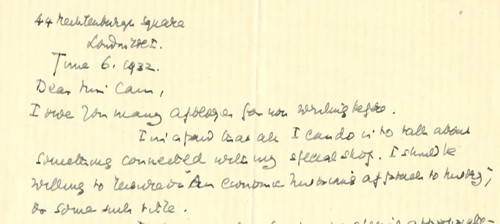 44 Mecklenburgh Square
London W.C.1.
June 6. 1932.
Dear Miss Cam,
I owe you many apologies for non writing before.
I'm afraid that all I can do is to talk about
something connected with my special shop. I should be
willing to lecture on "An economic historian's approach to history",
or some such title.